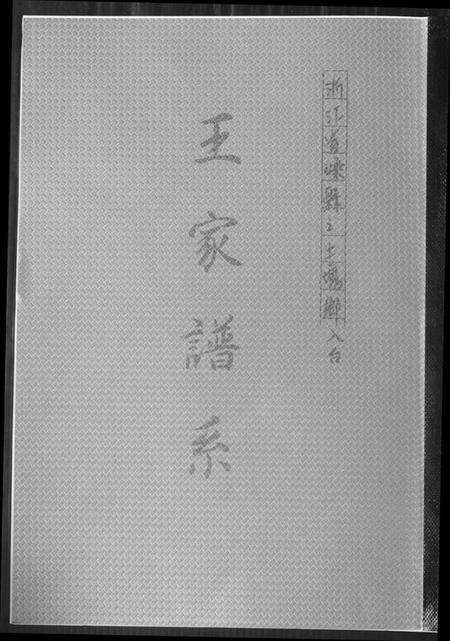 浙江省嵊縣之土塊鄉入台
王家譜系